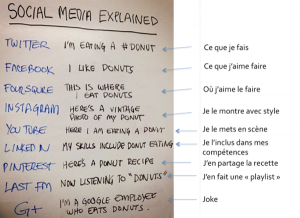 SOCIAL MEDIA EXPLAINED
TWITTER I'M EATING A # DONUT
Ce que je fais
FACEBOOK I LIKE DONUTS
Ce que j'aime faire
FOURSQUARE THIS IS WHERE
I EAT DONUTS
Où j'aime le faire
INSTAGRAM HERE'S A VINTAGE
PHOTO OF MY DONUT
Je le montre avec style
YOU TUBE HERE I AM EATING A DONUT
Je le mets en scène
LINKED IN MY SKILLS INCLUDE DONUT EATING
Je l'inclus dans mes
compétences
PINTEREST HERE'S A DONUT RECIPE
J'en partage la recette
LAST FM NOW LISTENING TO "DONUTS"
J'en fait une « playlist »
G+ I'M A GOOGLE EMPLOYEE
WHO EATS DONUTS.
Joke